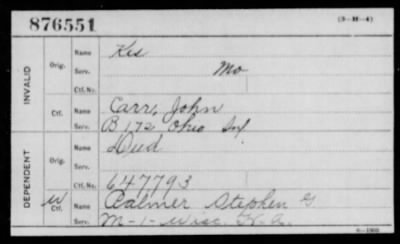 876551
(3-H-4)
INVALID
Orig.
Name Kis
Serv. Mo
Ctf. No.
Ctf.
Name Carr, John
Serv. B 172 Ohio Inf
DEPENDENT
Orig.
Name Died
Serv.
Ctf. No. 647793
W Ctf.
Name Palmer Stephen G
Serv. M-1-Wisc. H.A.